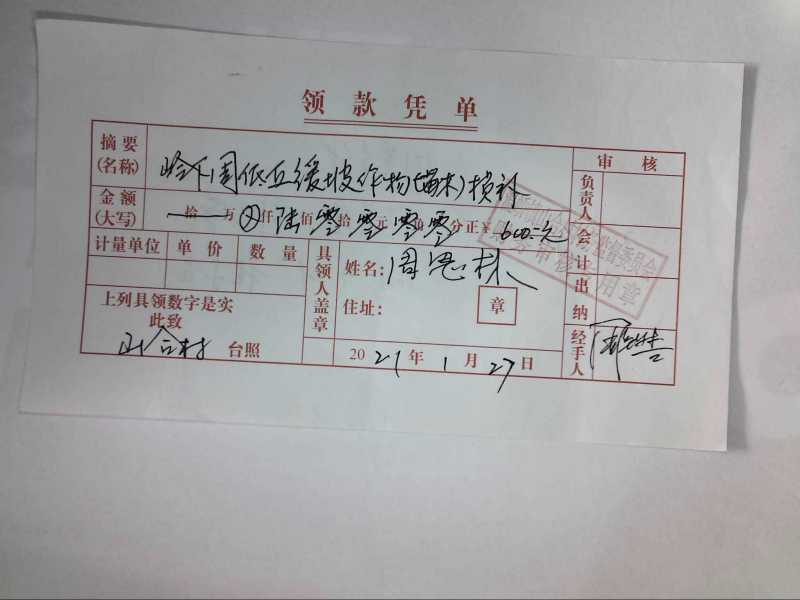 领款凭单
摘要
(名称)
下周低丘缓坡作物(苗木)损补
审核
金额
(大写)
拾万仟陆佰零拾零元零角零分正￥600.元
负责人
会计
出纳
经手人
计量单位 单价 数量
具领人盖章
姓名:周思林
住址:
章
上列具领数字是实
此致
村 台照
2021年1月27日